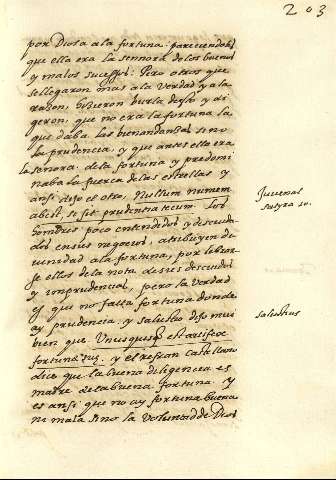 203
por Diosa a la fortuna pareciendoles
que ella era la señora de los buenos
y malos sucessos: Pero otros que
se llegaron mas a la verdad y a la
razon, hizieron burla desto y di
geron, que no era la fortuna la
que daba las buenandanzas sino
la prudencia, y que antes ella era
la señora de la fortuna y predomi
naba la fuerça de las estrellas y
ansi dijo el otro, Nullum numem
abest, si sit prudentia tecum. Los
hombres poco entendidos y descuida
dos en sus negocios, atribuyen de
unidad a la fortuna, por librar
se ellos de la nota de sus descuidos
y imprudencia, pero la verdad
es que no falta fortuna donde
ay prudencia, y salustio dijo mui
bien que Unusquisq est artifex
fortunæ suæ, y el refran castellano
dice que la buena diligencia es
madre de la buena fortuna. Y
es ansi: que no ay fortuna buena
ni mala sino la voluntad de Dios
Juvenal
satyra 10.
Salustius